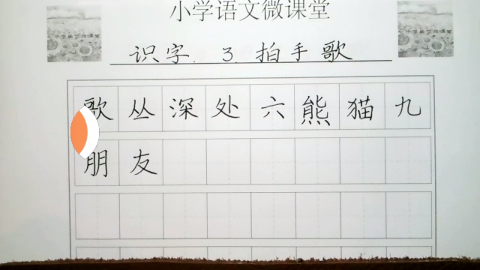 小学语文微课堂
识字. 3 拍手歌
歌丛深处六熊猫九
朋友